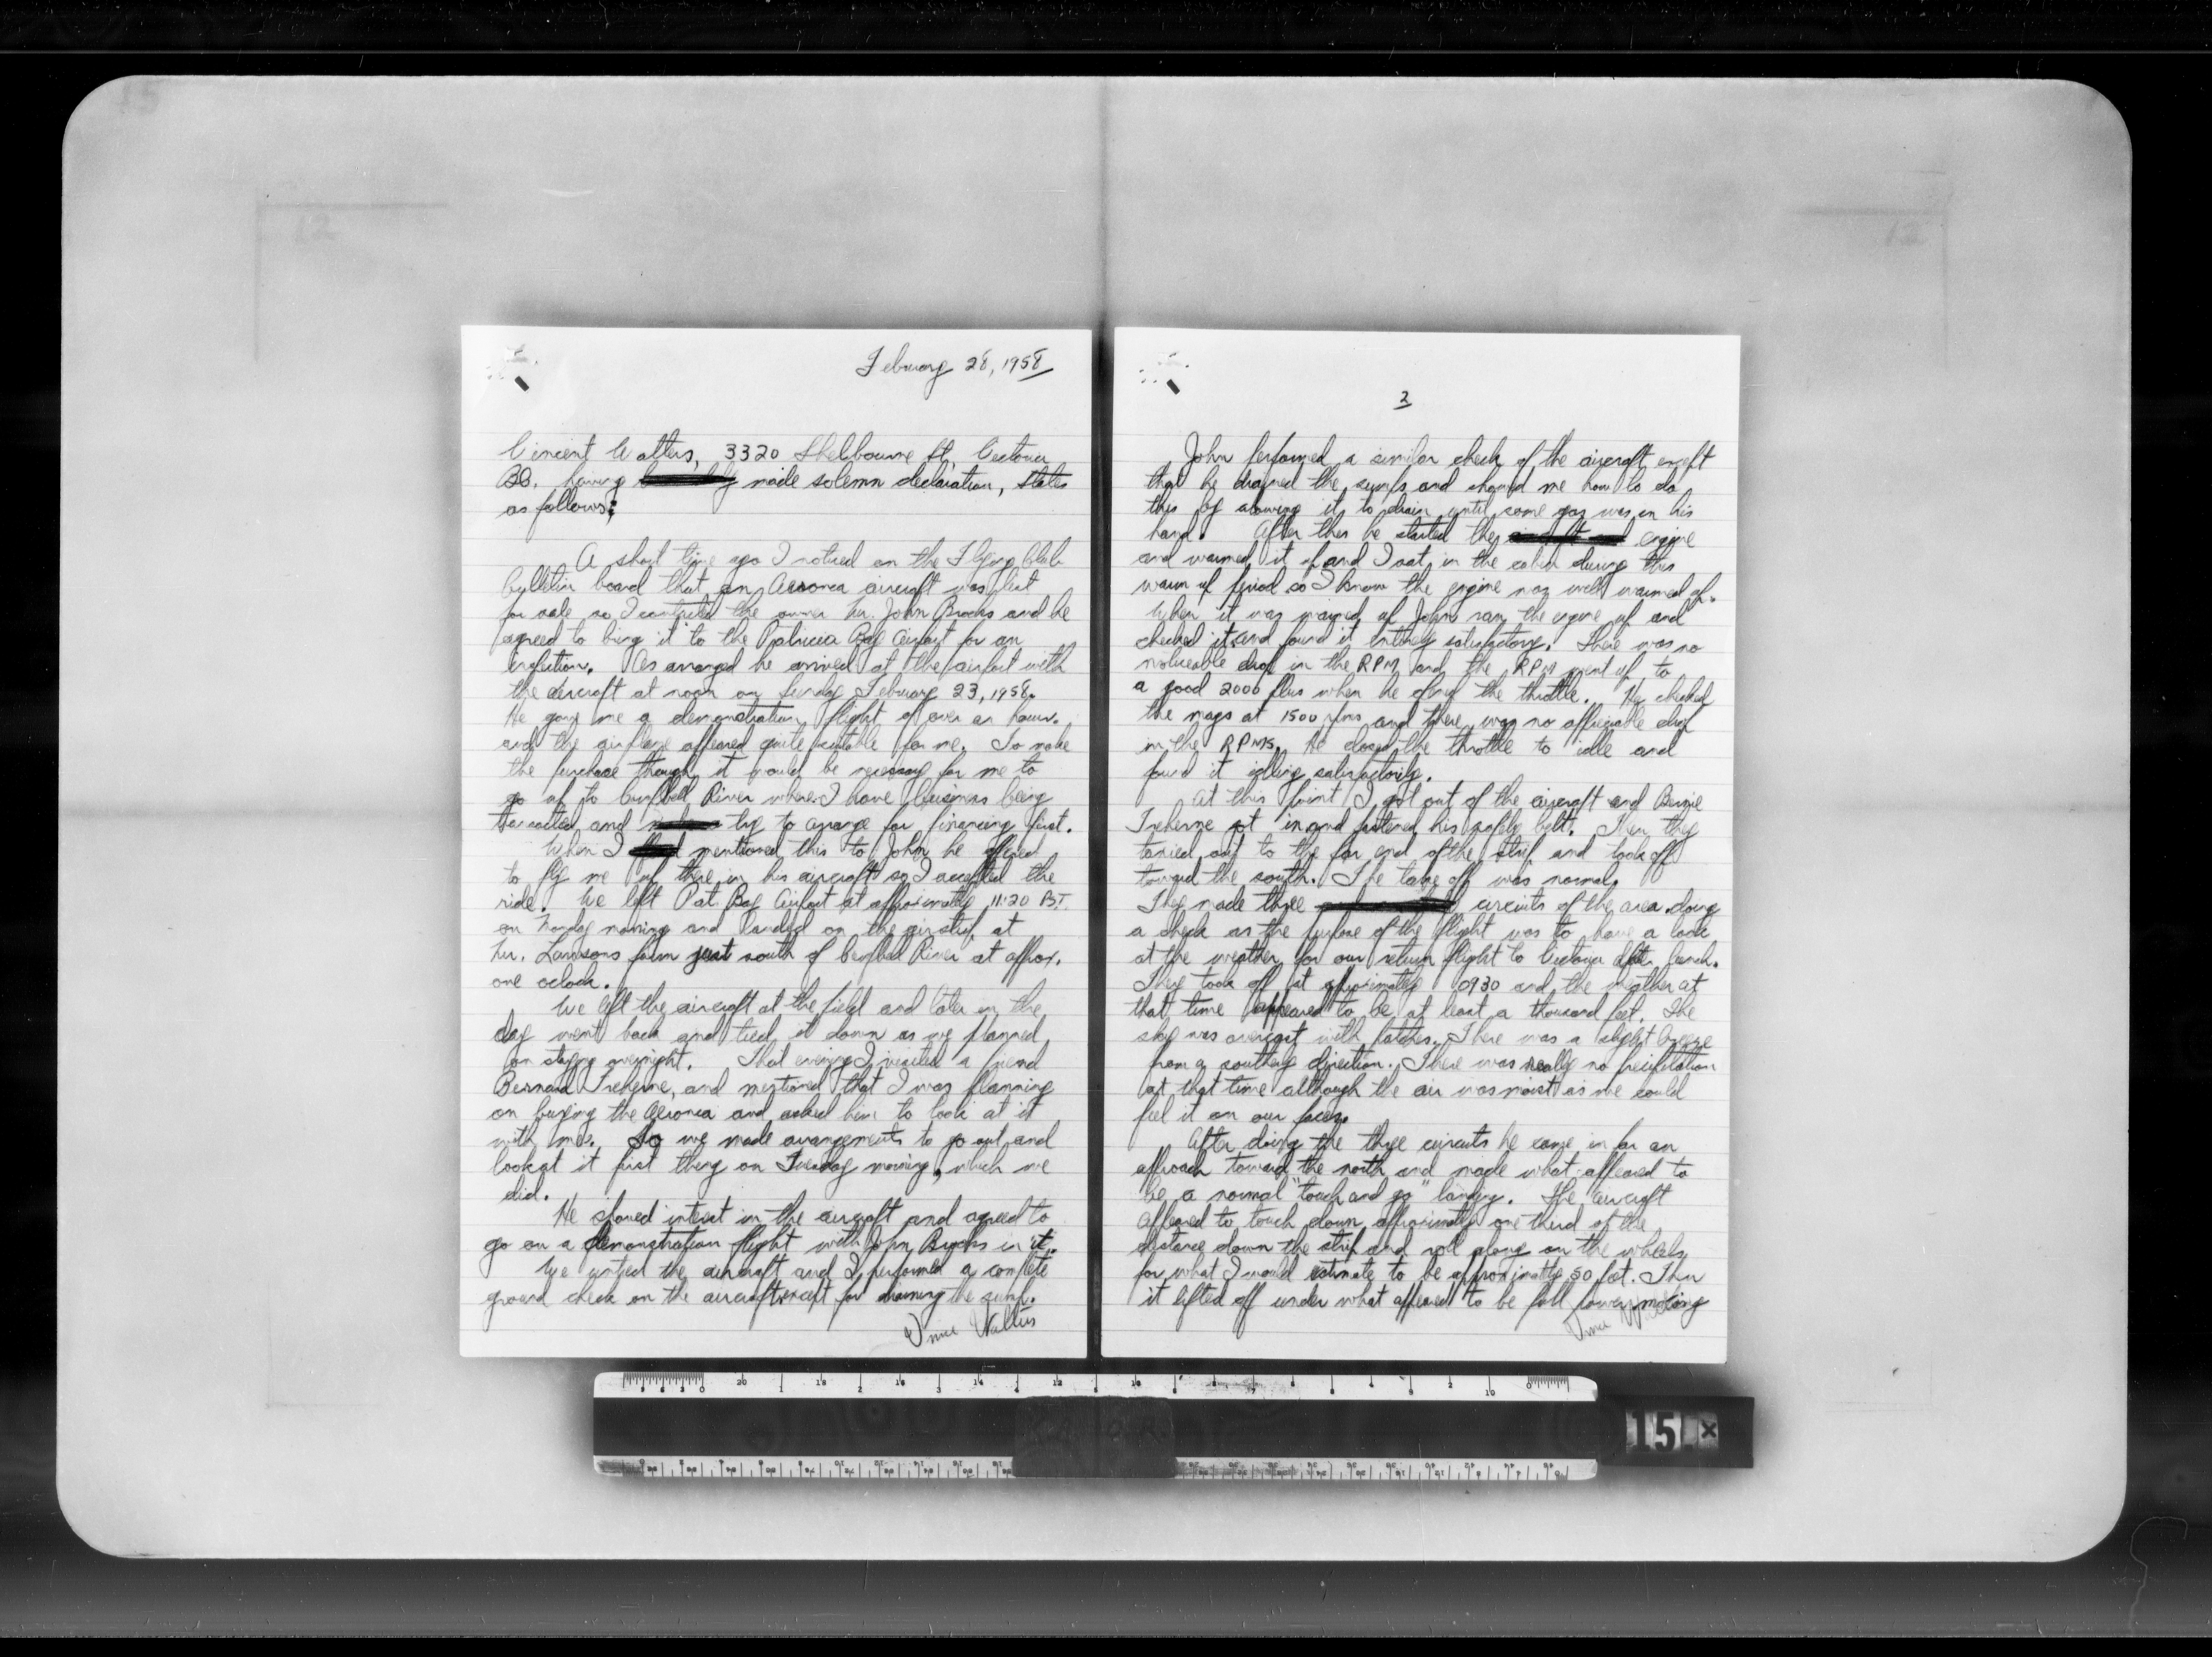 February 28, 1958
Vincent Walters, 3320 Shelbourne St, Victoria
BC. having made solemn declaration, states
as follows:
A short time ago I noticed on the Flying Club
bulletin board that an Aeronca aircraft was
for sale so I contacted the owner Mr. John Brooks and he
agreed to bring it to the Patricia Bay Airport for an
inspection. As arranged he arrived at the airport with
the aircraft at noon on Sunday February 23, 1958.
He gave me a demonstration flight of over an hour.
and the airplane appeared quite suitable for me. To make
the purchase though it would be necessary for me to
go up to Campbell River where I have business being
transacted and try to arange for financing first.
When I mentioned this to John he offered
to fly me up there in his aircraft so I accepted the
ride. We left Pat. Bay Airport at approximatly 11:20 P.S.T.
on Monday morning and landed on the airstrip at
Mr. Lawsons farm just south of Campbell River at approx.
one oclock.
We left the aircraft at the field and later in the
day went back and tied it down as we planned
on staying overnight. That evening I visited a friend
Bernard Treherne, and mentioned that I was planning
on buying the Aeronca and asked him to look at it
with me. So we made arangements to go out and
look at it first thing on Tuesday morning, which we
did.
He showed interest in the aircraft and agreed to
go on a demonstration flight with John Brooks in it.
We untied the aircraft and I performed a complete
ground check on the aircraft except for draining the sump.
Vince Walters
2
John performed a similar check of the aircraft except
that he drained the sumps and showed me how to do
this by alowing it to drain until some gas was in his
hand. After this he started the engine
and warmed it up and I sat in the cabin during this
warm up period so I know the engine was well warmed up.
When it was warmed up John ran the engine up and
checked it and found it entirely satisfactory. There was no
noticeable drop in the RPM and the RPM went up to
a good 2000 plus when he opened the throttle. He checked
the mags at 1500 rpms and there was no appreciable drop
in the RPMs. He closed the throttle to idle and
found it idling satisfactorily.
At this point I got out of the aircraft and Bernie
Treherne got in and fastened his safety belt. Then they
taxied out to the far end of the strip and took off
toward the south. The take off was normal.
They made three circuits of the area doing
a check as the purpose of the flight was to have a look
at the weather for our return flight to Victoria after lunch.
They took off at approximatly 0930 and the weather at
that time appeared to be at least a thousand feet. The
sky was overcast with patches. There was a slight breeze
from a southerly direction. There was really no precipitation
at that time although the air was moist as we could
feel it on our faces.
After doing the three circuits he came in for an
approach toward the north and made what appeared to
be a normal "touch and go" landing. The aircraft
appeared to touch down approximatly one third of the
distance down the strip and roll along on the wheels
for what I would estimate to be approximatly 50 feet. Then
it lifted off under what appeared to be full power making
Vince Walters
15 x